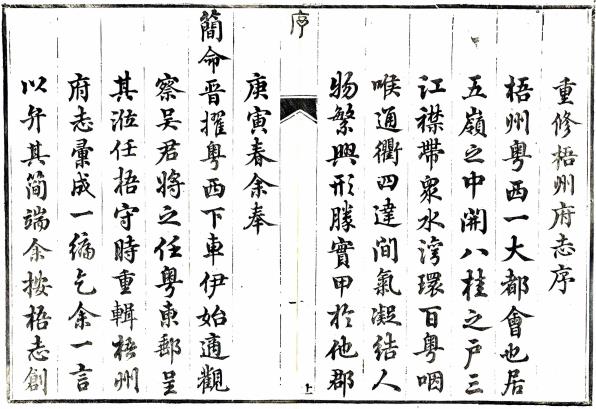 重修梧州府志序
梧州粵西一大都會也居
五嶺之中開八桂之戶三
江襟帶衆水灣環百粵咽
喉通衢四達間氣凝結人
物繁興形勝實甲扵他郡
序
上
庚寅春余奉
簡命晋擢粵西下車伊始適觀
察吳君將之任粵東郵呈
其涖任梧守時重輯梧州
府志彙成一编乞余一言
以弁其简端余按梧志創